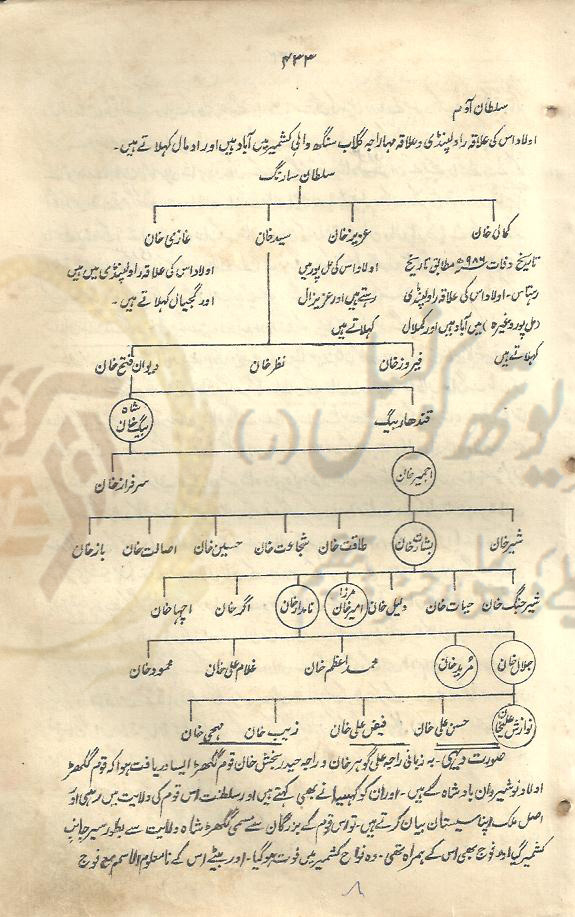 ۴۳۳
سلطان آدم
اولاد اس کی علاقہ راولپنڈی و علاقہ مہاراجہ گلاب سنگھ والئی کشمیر میں آباد ہیں اور ادمال کہلاتے ہیں۔
سلطان سارنگ
کمالی خان عزیز خان سید خان غازی خان
تاریخ وفات ۹۸۲ھ مطابق تاریخ
رہتاس۔ اولاد اس کی علاقہ راولپنڈی
(مل پور وغیرہ) میں آباد ہیں اور کملال
کہلاتے ہیں
اولاد اس کی مل پور میں
رہتے ہیں اور عزیزال
کہلاتے ہیں
اولاد اس کی علاقہ راولپنڈی میں ہیں
اور گجیال کہلاتے ہیں۔
فیروز خان نظر خان دیوان فتح خان
قندھار بیگ شاہ بیگ خان
اجمیر خان سرفراز خان
شیر خان بشارت خان طاقت خان شجاعت خان حسین خان اصالت خان باز خان
شیر جنگ خان حیات خان دلیل خان مرزا امیر خان نامدار خان اگر خان اچھا خان
جلال خان مرید خان محمد اعظم خان غلام علی خان محمود خان
نوازش علیخان حسن علی خان فیض علی خان زیب خان مہجی خان
صورت دیہی۔ بہ زبانی راجہ علی گوہر خان و راجہ حیدر بخش خان قوم گکھڑ ایسا دریافت ہوا کہ قوم گکھڑ
اولاد نوشیروان بادشاہ کے ہیں۔ اور ان کو کہیسانے بھی کہتے ہیں اور سلطنت اس قوم کی ولایت میں رہی اور
اصل ملک اپنا سیستان بیان کرتے ہیں۔ تو اس قوم کے بزرگان سے مسمی گکھڑ شاہ ولایت سے بطور سیر جانب
کشمیر گیا اور فوج بھی اس کے ہمراہ تھی۔ وہ نواح کشمیر میں فوت ہو گیا۔ اور بیٹے اس کے نامعلوم الاسم مع فوج